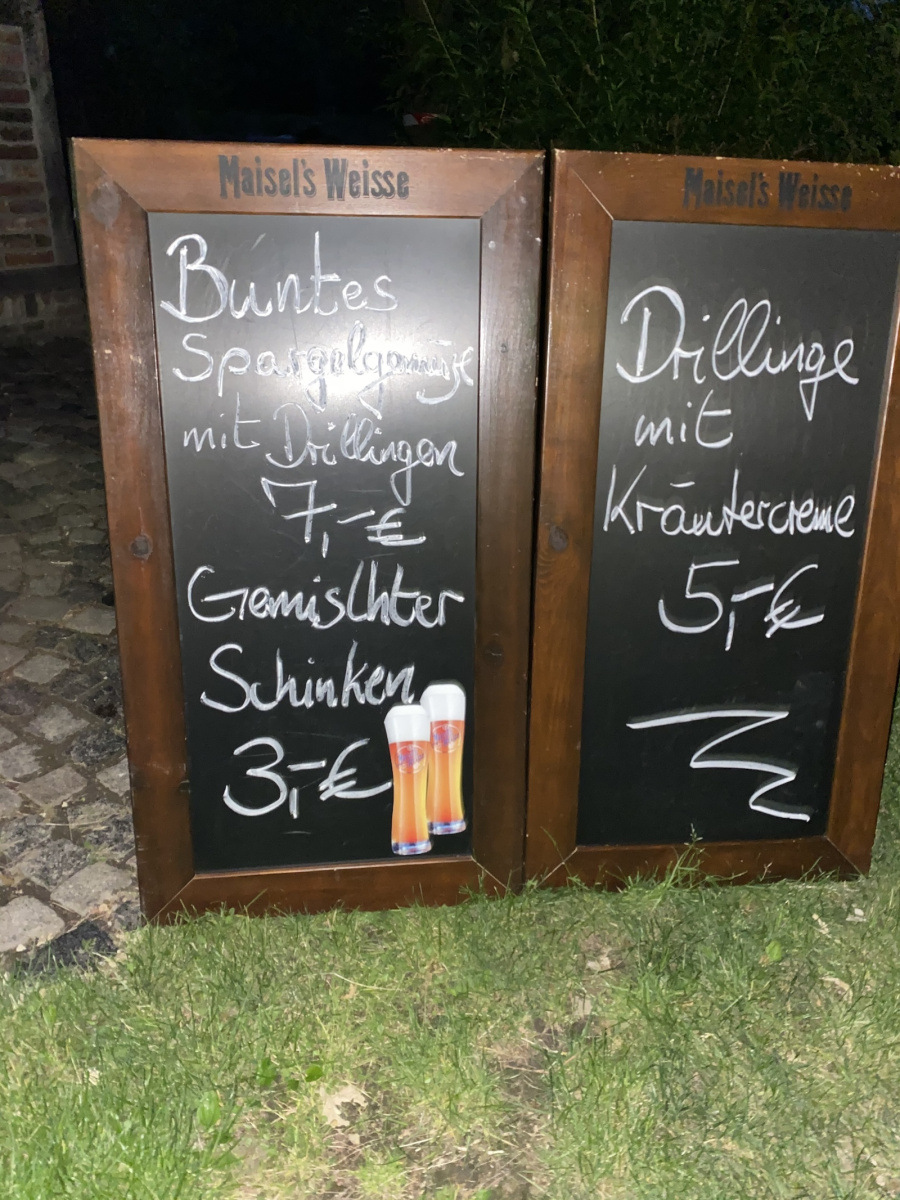 Maisel's Weisse
Buntes
Spargelgemüse
mit Drillingen
7,-€
Gemischter
Schinken
3,-€
Maisel's Weisse
Drillinge
mit
Kräutercreme
5,-€